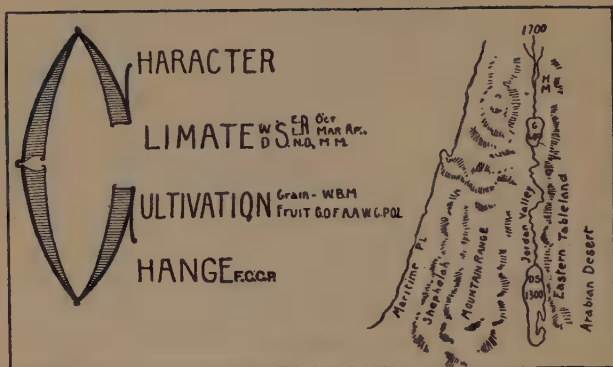 C
HARACTER
LIMATE
W S.
D S.
Oct
N.D., M M.
ULTIVATION
Grain - W.B.M
FRUIT
HANGE
1700
Maritime Pl.
Shephelah
MOUNTAIN RANGE
Jordan Valley
D S
1300
Eastern Tableland
Arabian Desert